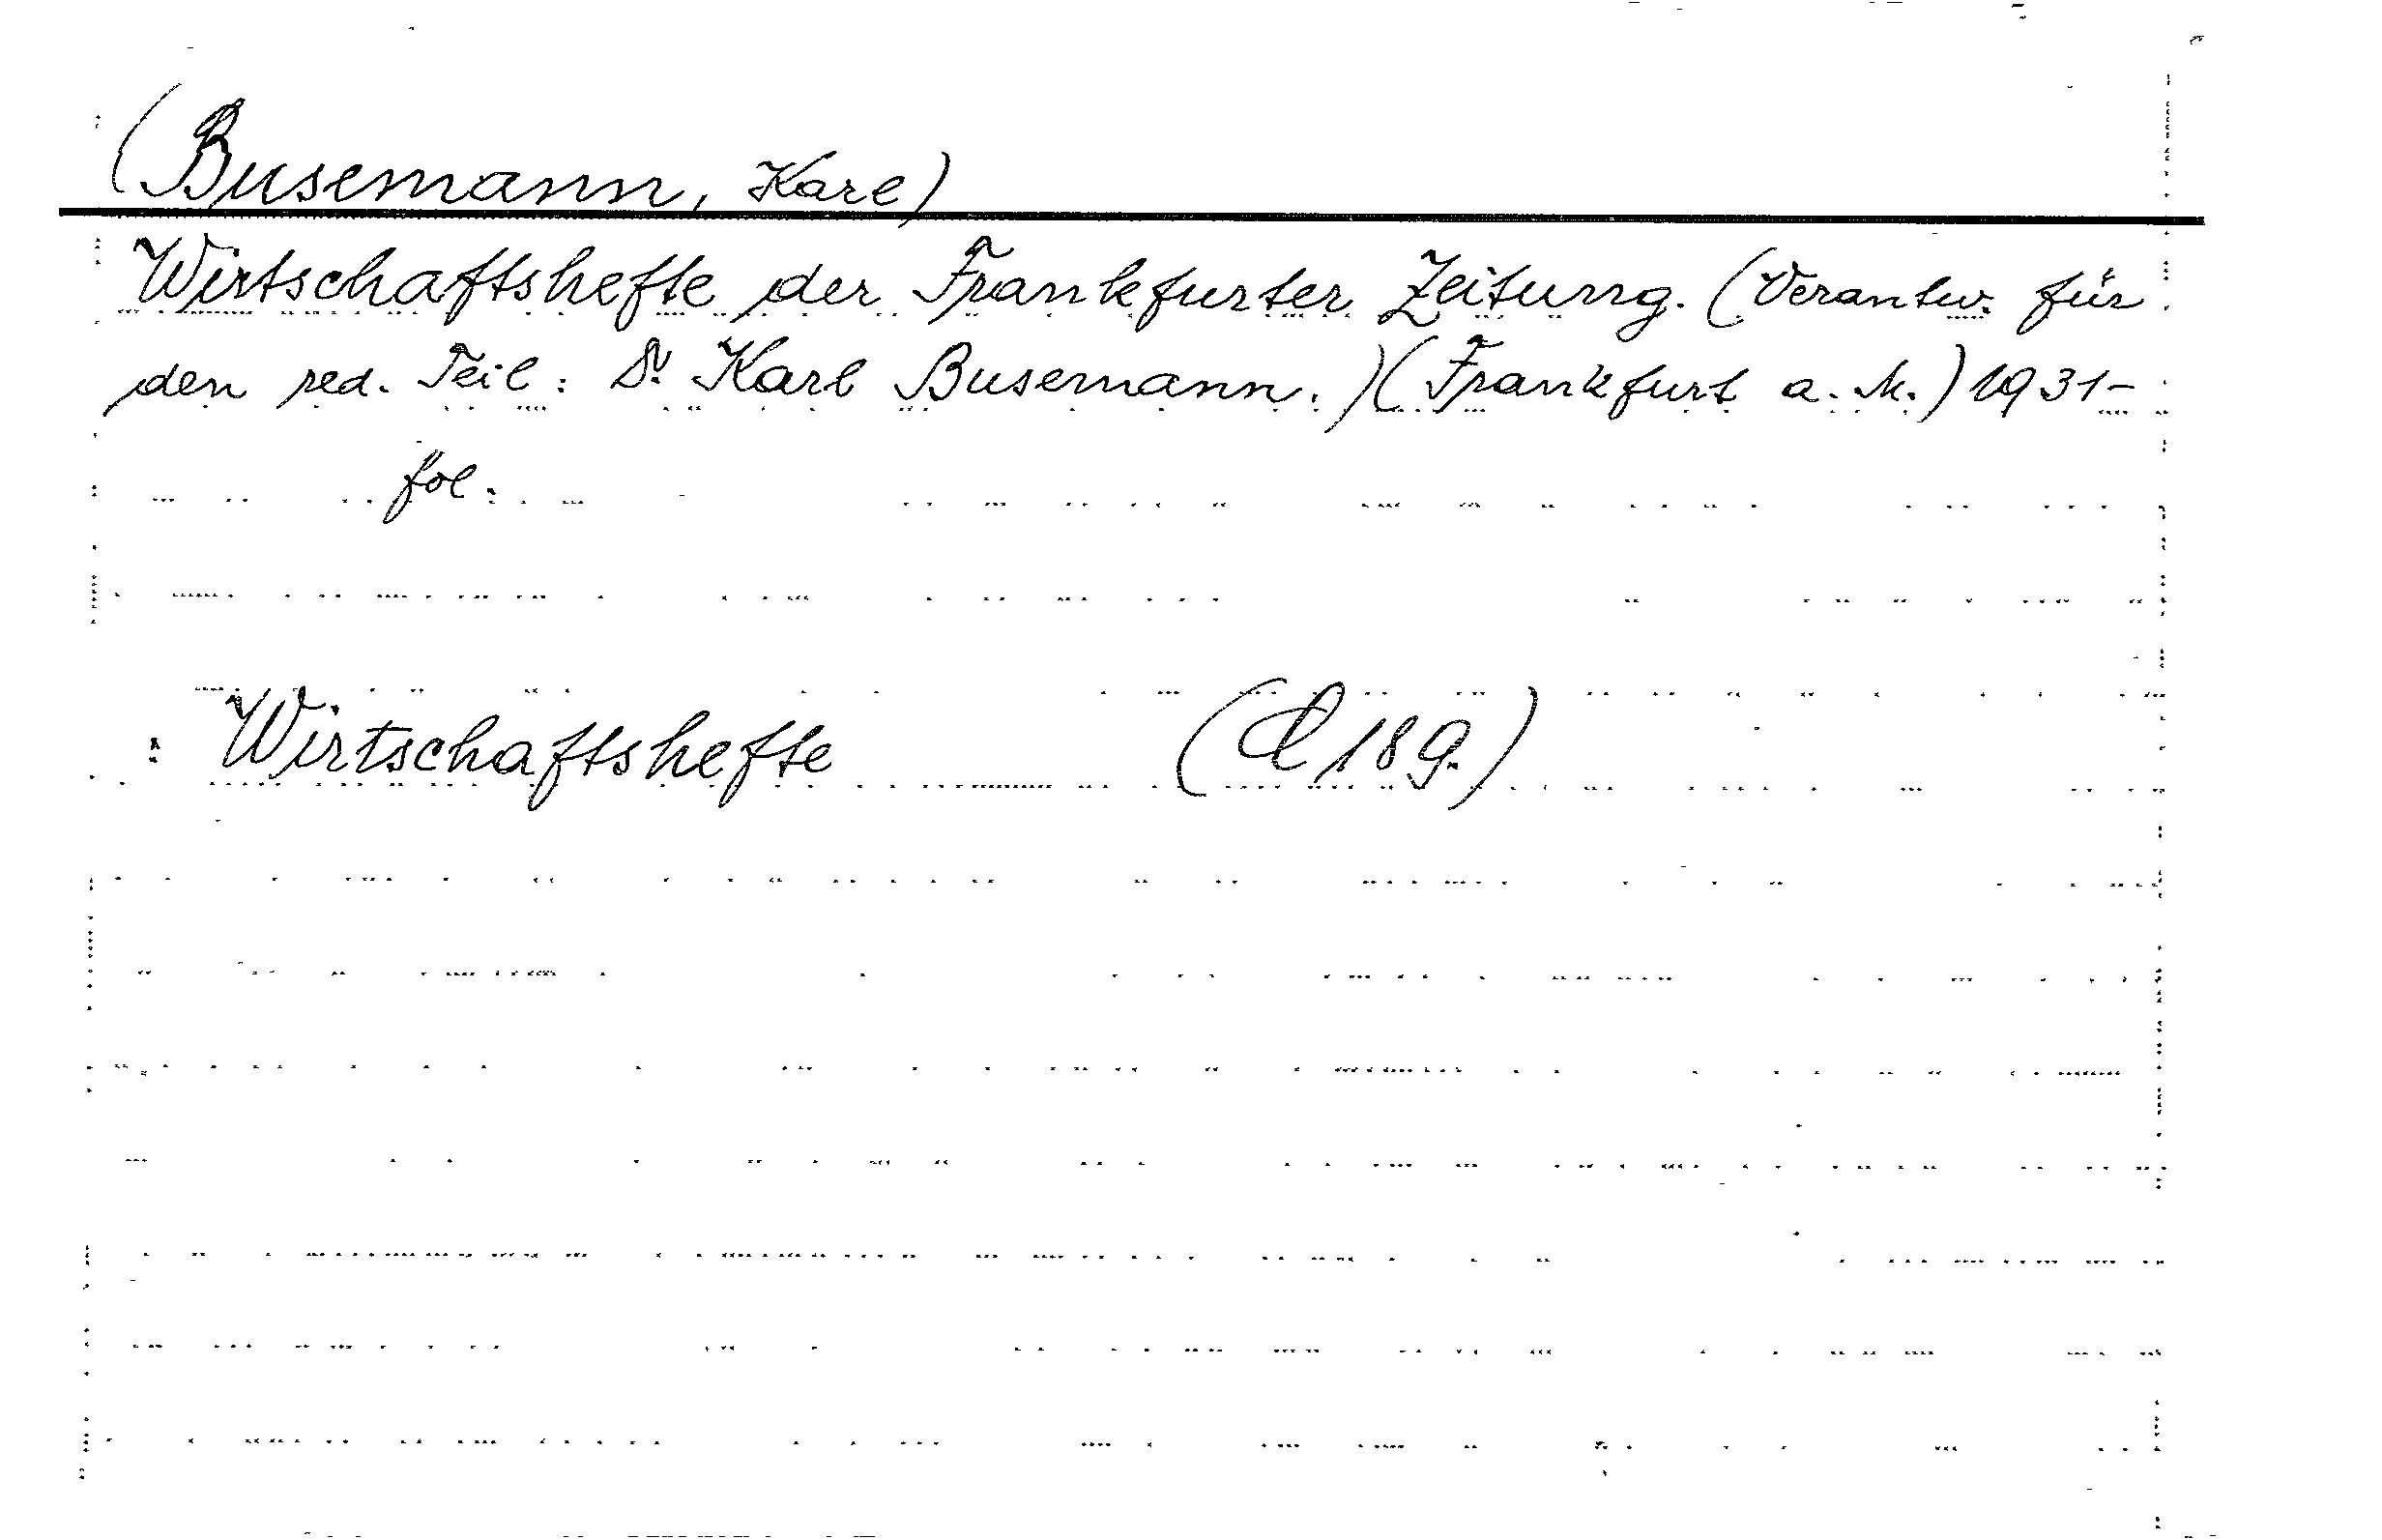 (Busemann, Karl)
Wirtschaftshefte der Frankfurter Zeitung. (Verantw. für
den red. Teil: Dr Karl Busemann.) (Frankfurt a. M.) 1931-
fol.
: Wirtschaftshefte (d 189.)